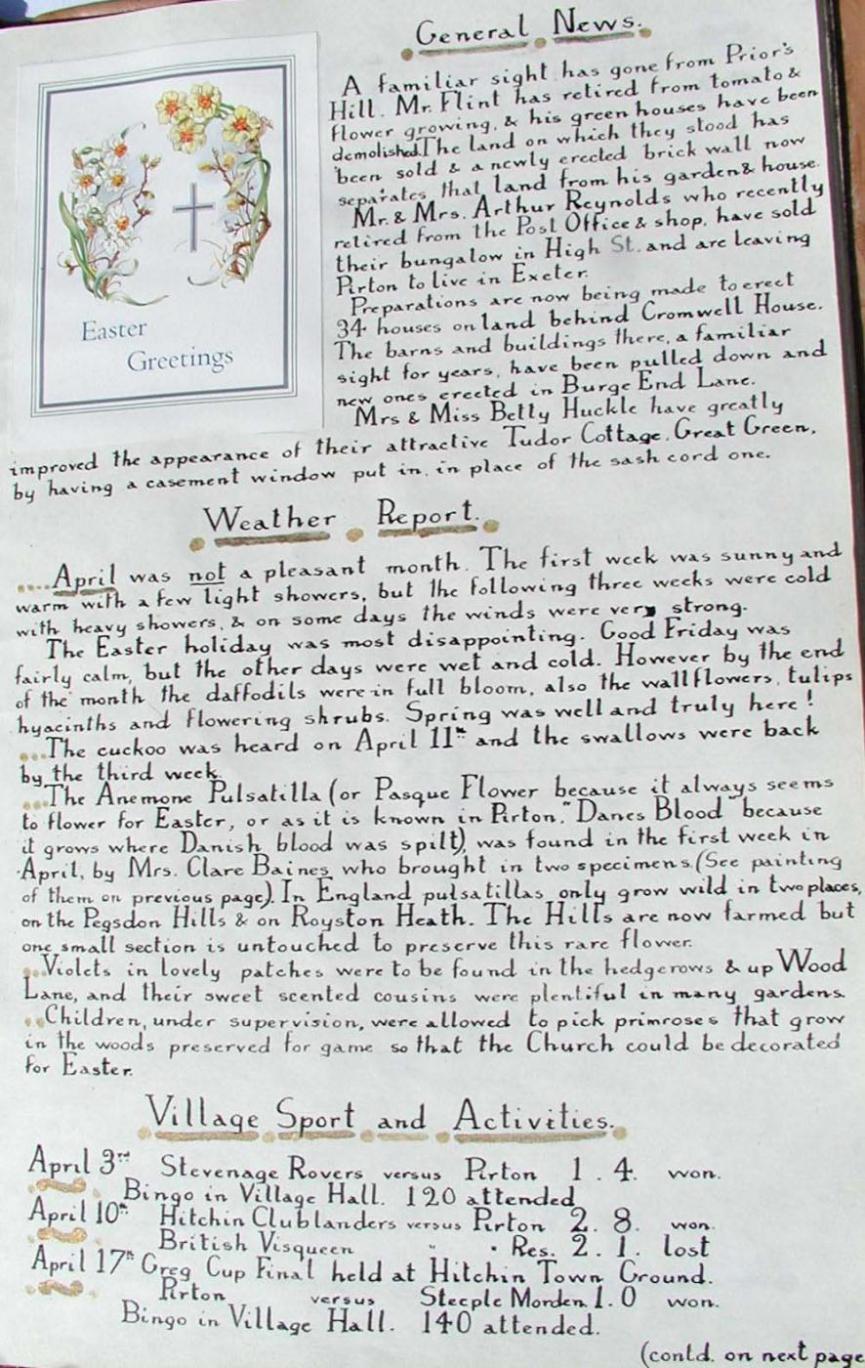 General News.
A familiar sight has gone from Prior's
Hill. Mr. Flint has retired from tomato &
flower growing, & his green houses have been
demolished. The land on which they stood has
been sold & a newly erected brick wall now
separates that land from his garden & house.
Mr. & Mrs. Arthur Reynolds who recently
retired from the Post Office & shop, have sold
their bungalow in High St. and are leaving
Pirton to live in Exeter.
Preparations are now being made to erect
34 houses on land behind Cromwell House.
The barns and buildings there, a familiar
sight for years, have been pulled down and
new ones erected in Burge End Lane.
Mrs & Miss Betty Huckle have greatly
improved the appearance of their attractive Tudor Cottage, Great Green,
by having a casement window put in, in place of the sash cord one.
Easter
Greetings
Weather Report.
....April was not a pleasant month. The first week was sunny and
warm with a few light showers, but the following three weeks were cold
with heavy showers, & on some days the winds were very strong.
The Easter holiday was most disappointing. Good Friday was
fairly calm, but the other days were wet and cold. However by the end
of the month the daffodils were in full bloom, also the wallflowers, tulips
hyacinths and flowering shrubs. Spring was well and truly here!
...The cuckoo was heard on April 11th and the swallows were back
by the third week.
...The Anemone Pulsatilla (or Pasque Flower because it always seems
to flower for Easter, or as it is known in Pirton, "Danes Blood" because
it grows where Danish blood was spilt), was found in the first week in
April, by Mrs. Clare Baines, who brought in two specimens. (See painting
of them on previous page). In England pulsatillas only grow wild in two places,
on the Pegsdon Hills & on Royston Heath. The Hills are now farmed but
one small section is untouched to preserve this rare flower.
..Violets in lovely patches were to be found in the hedgerows & up Wood
Lane, and their sweet scented cousins were plentiful in many gardens.
..Children, under supervision, were allowed to pick primroses that grow
in the woods preserved for game so that the Church could be decorated
for Easter.
Village Sport and Activities.
April 3rd Stevenage Rovers versus Pirton 1 . 4. won.
Bingo in Village Hall. 120 attended
April 10th Hitchin Clublanders versus Pirton 2. 8. won.
British Visqueen " . Res. 2. 1. lost
April 17th Greg Cup Final held at Hitchin Town Ground.
Pirton versus Steeple Morden 1. 0 won.
Bingo in Village Hall. 140 attended.
(contd. on next page